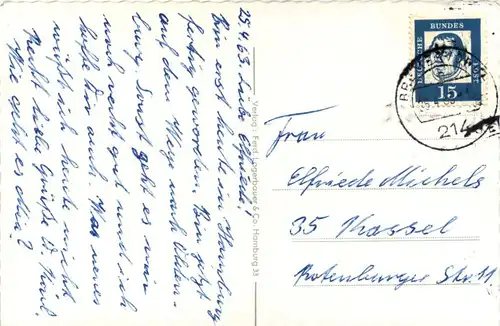 25.4.63. Liebe Elfriede!
Bin erst heute in Hamburg
fertig geworden. Bin jetzt
auf dem Wege nach Olden-
burg. Sonst geht es mir
noch recht gut und ich
hoffe Dir auch. Was neues
wüßte ich heute nicht
Recht liebe Grüße D. Karl.
Wie geht es Ilse?
Verlag: Ferd. Lagerbauer & Co. Hamburg 33
DEUTSCHE
BUNDES
POST
15
214
Frau
Elfriede Michels
35 Kassel
Rotenburger Str. 11